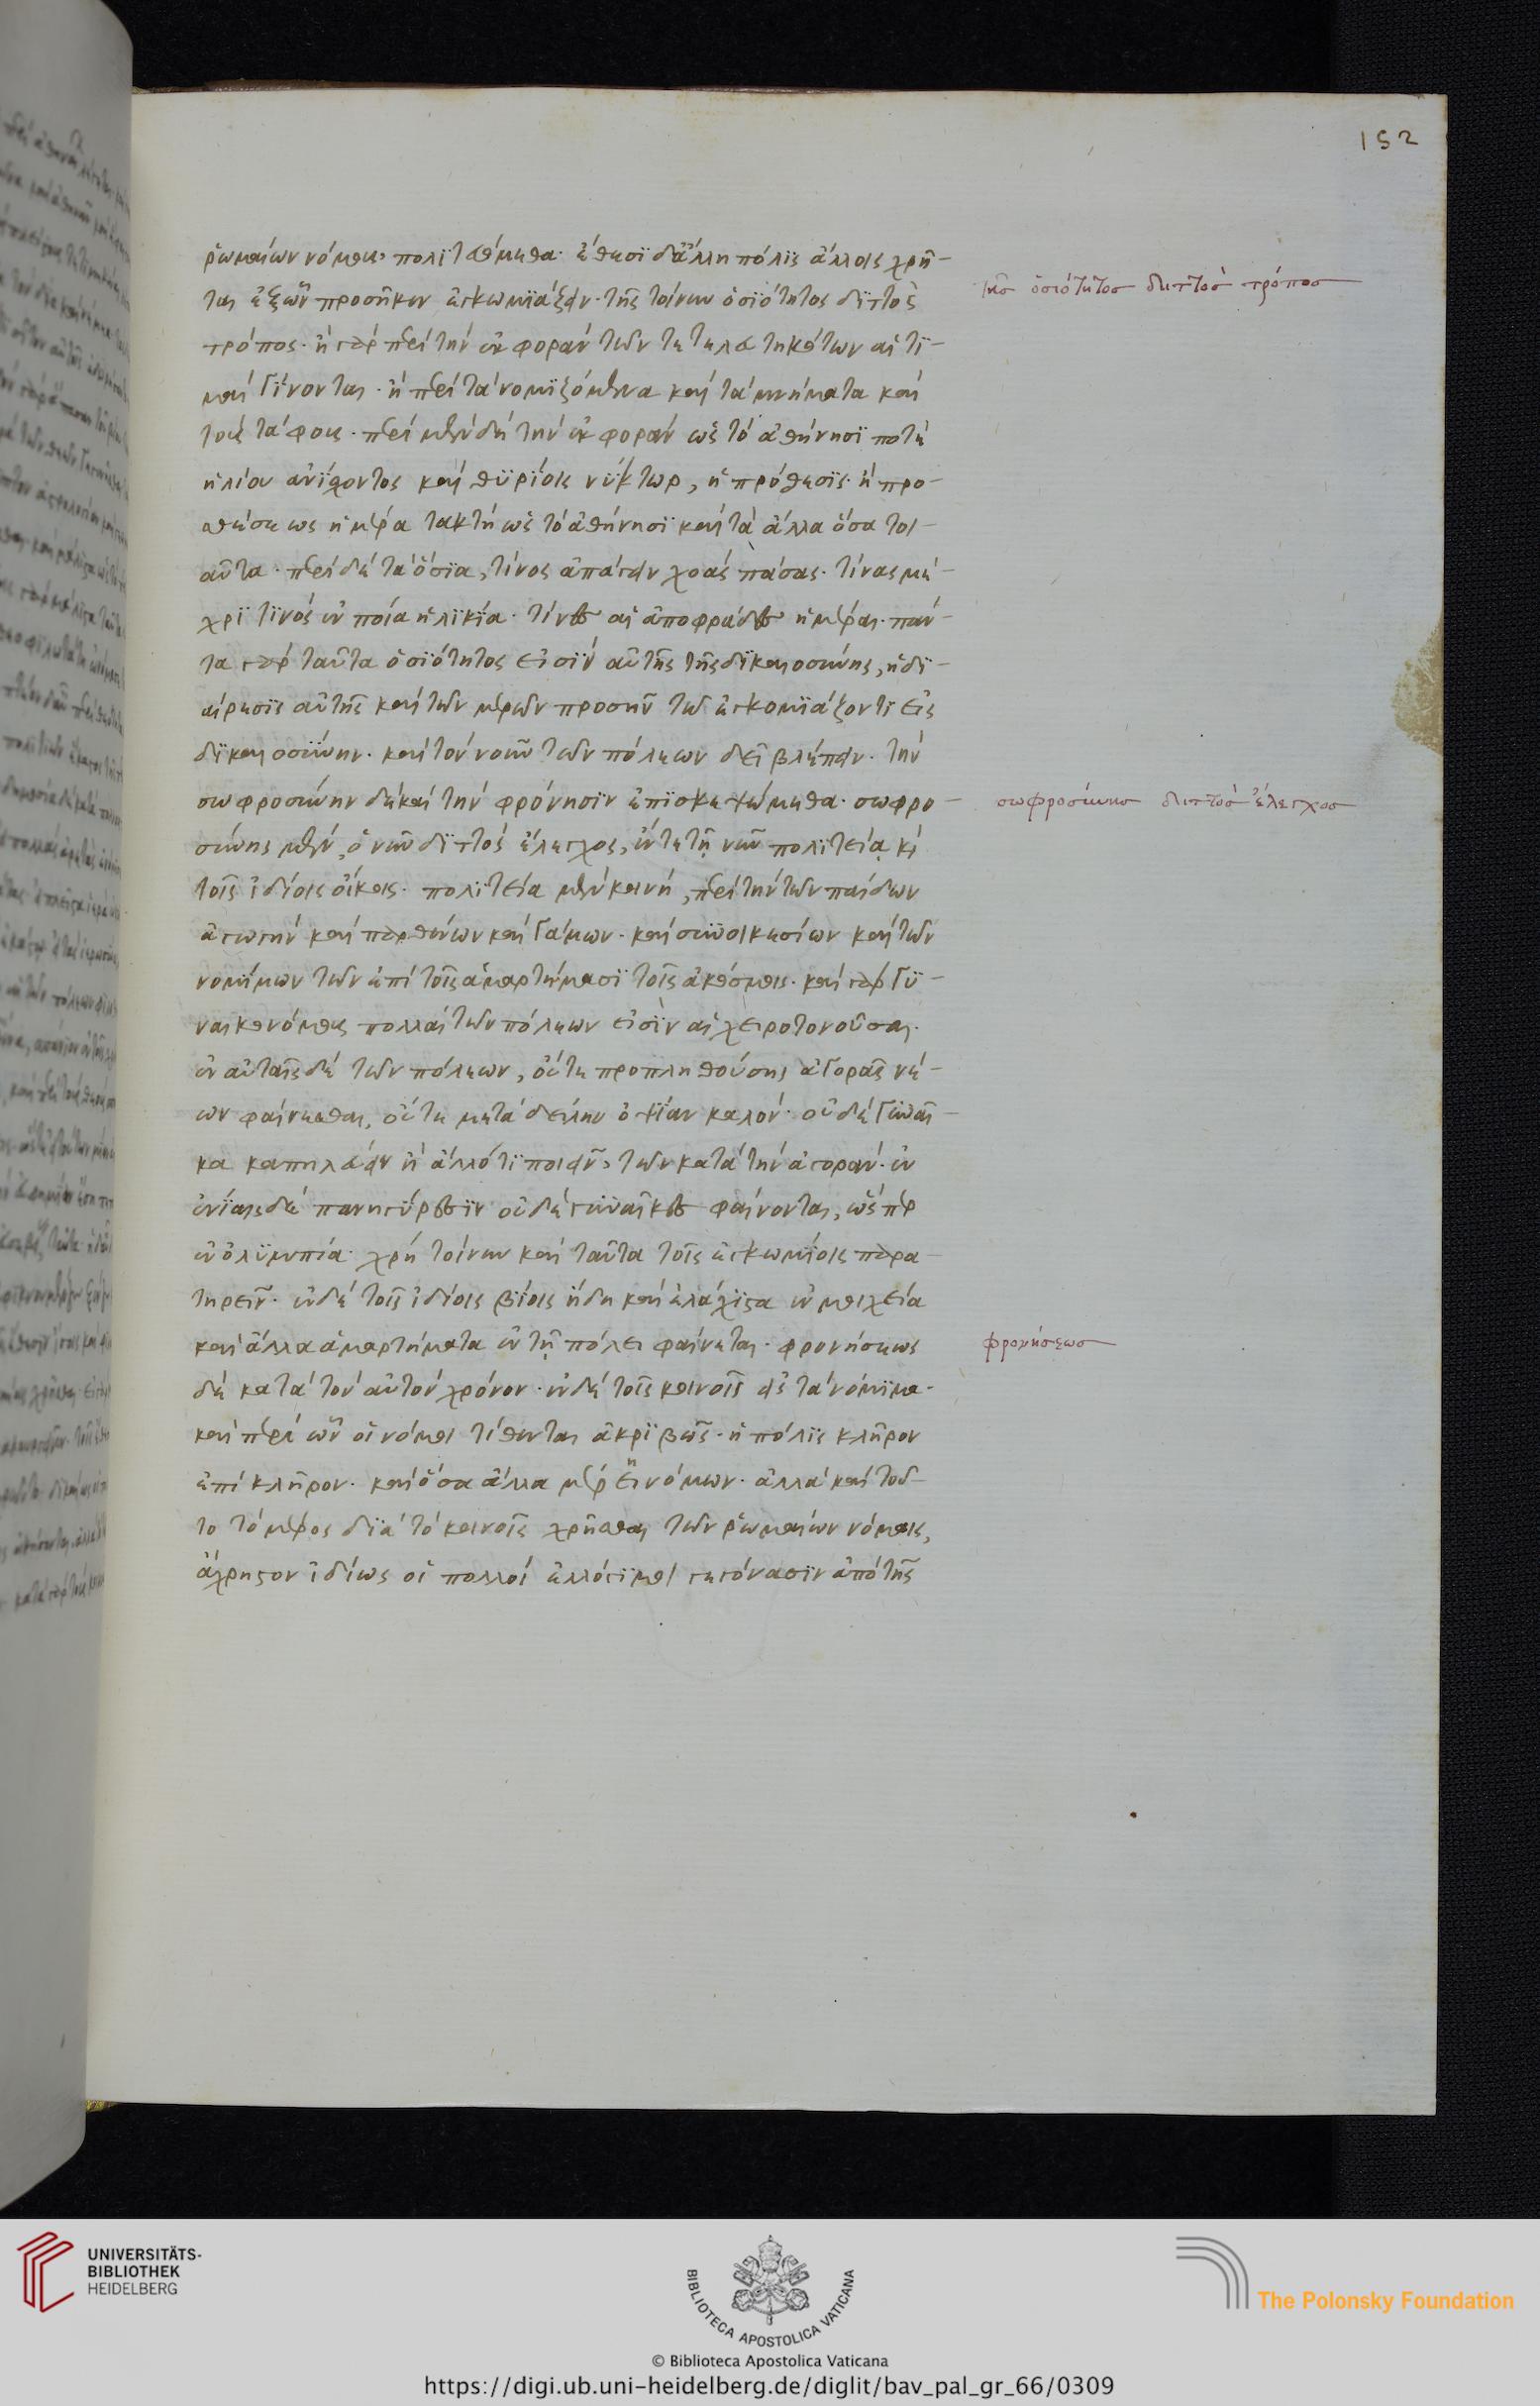 152
ῥωμαίων νόμοις πολιτευόμεθα· ἔθεσι δ' ἄλλη πόλις ἄλλοις χρῆ-
ται ἐξ ὧν προσῆκεν ἐγκωμιάζειν· τῆς τοίνυν ὁσιότητος διττὸς
τρόπος· ἢ γὰρ περὶ τὴν ἐκφορὰν τῶν τετελευτηκότων αἱ τι-
μαὶ γίνονται· ἢ περὶ τὰ νομιζόμενα καὶ τὰ μνήματα καὶ
τοὺς τάφους· περὶ μὲν δὴ τὴν ἐκφορὰν ὡς τὸ ἀθήνησι ποτὲ
ἡλίου ἀνίσχοντος καὶ θυρίοις νύκτωρ, ἡ πρόθεσις· ἢ προ-
θέσεως ἡμέρα τακτὴ ὡς τὸ ἀθήνησι καὶ τὰ ἄλλα ὅσα τοι-
αῦτα· περὶ δὲ τὰ ὅσια, τίνος ἀπάγειν χοὰς πάσας· τίνας μέ-
χρι τινὸς ἐν ποία ἡλικία· τίνες αἱ ἀποφράδες ἡμέραι· πάν-
τα γὰρ ταῦτα ὁσιότητος εἰσὶν αὐτῆς τῆς δικαιοσύνης, ἡ δι-
αίρεσις αὐτῆς καὶ τῶν μερῶν προσῆν τῶ ἐγκομιάζοντι εἰς
δικαιοσύνην· καὶ τὸν νοῦν τῶν πόλεων δεῖ βλέπειν· τὴν
σωφροσύνην δὲ καὶ τὴν φρόνησιν ἐπισκεψώμεθα· σωφρο-
σύνης μὲν, ὁ νῦν διττὸς ἔλεγχος, ἔν τε τῇ νῦν πολιτείᾳ κὶ
τοῖς ἰδίοις οἴκοις· πολιτεία μὲν κοινή, περὶ τὴν τῶν παίδων
ἀγωγὴν καὶ παρθένων καὶ γάμων· καὶ συνοικεσίων καὶ τῶν
νομίμων τῶν ἐπὶ τοῖς ἁμαρτήμασι τοῖς ἀκόσμοις· καὶ γὰρ γυ-
ναικονόμους πολλαὶ τῶν πόλεων εἰσὶν αἱ χειροτονοῦσαι·
ἐν αὐταῖς δὲ τῶν πόλεων, οὔτε προπληθούσης ἀγορᾶς νέ-
ων φαίνεσθαι, οὔτε μετὰ δείλην ὀψίαν καλόν· οὐδὲ γυναῖ-
κα καπηλεύειν ἢ ἄλλό τι ποιεῖν, τῶν κατὰ τὴν ἀγοράν· ἐν
ἐνίαις δὲ πανηγύρεσιν οὐδὲ γυναῖκες φαίνονται, ὥσπερ
ἐν ὀλυμπία· χρὴ τοίνυν καὶ ταῦτα τοῖς ἐγκωμίοις παρα-
τηρεῖν· ἐν δὲ τοῖς ἰδίοις βίοις ἤδη καὶ ἐλάχιστα ἐν μοιχεία
καὶ ἄλλα ἁμαρτήματα ἐν τῇ πόλει φαίνεται· φρονήσεως
δὲ κατὰ τὸν αὐτὸν χρόνον· ἐν δὲ τοῖς κοινοῖς εἰς τὰ νόμιμα·
καὶ περὶ ὧν οἱ νόμοι τίθενται ἀκριβῶς· ἡ πόλις κλῆρον
ἐπίκληρον· καὶ ὅσα ἄλλα μέρη νόμων· ἀλλὰ καὶ τοῦ-
το τὸ μέρος διὰ τὸ κοινοῖς χρῆσθαι τῶν ῥωμαίων νόμοις,
ἄχρηστον ἰδίως οἱ πολλοὶ ἐλλόγιμοι γεγόνασιν ἀπὸ τῆς
τῆς ὁσιότητος διττὸς τρόπος
σωφροσύνης διττὸς ἔλεγχος
φρονήσεως
UNIVERSITÄTS-
BIBLIOTHEK
HEIDELBERG
BIBLIOTECA APOSTOLICA VATICANA
The Polonsky Foundation
© Biblioteca Apostolica Vaticana
https://digi.ub.uni-heidelberg.de/diglit/bav_pal_gr_66/0309